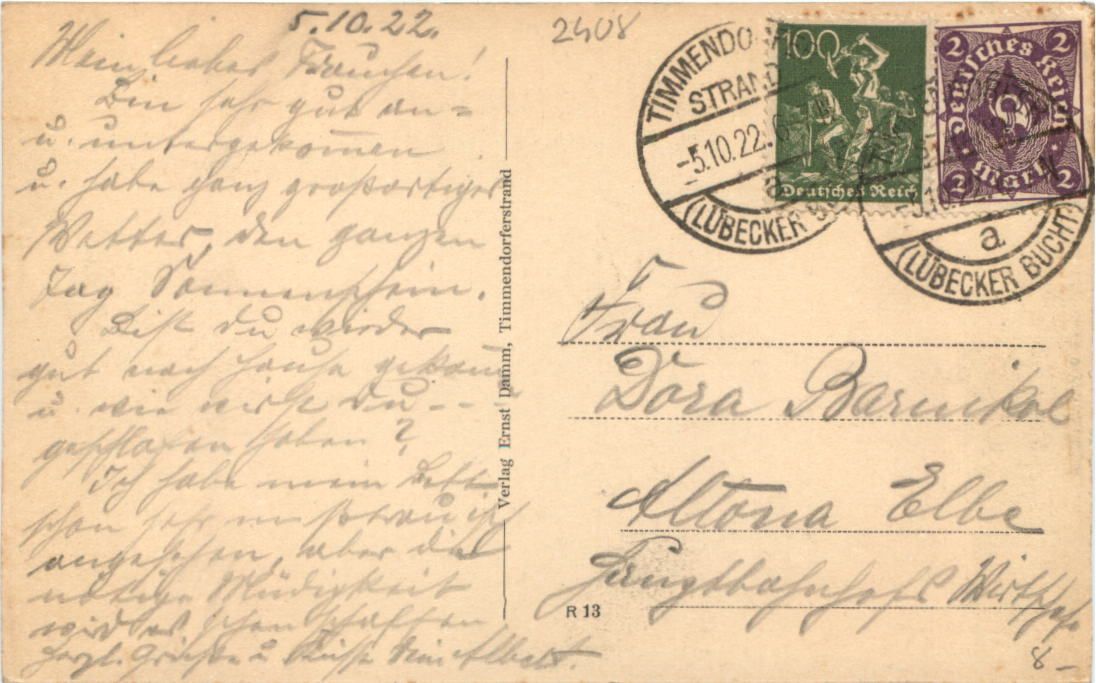 5.10.22.
Mein liebes Frauchen!
Bin sehr gut an=
u. untergekommen
u. habe ganz großartiges
Wetter, den ganzen
Tag Sonnenschein.
Bist du wieder
gut nach Hause gekom̄
u. wie wirst du - -
geschlafen haben?
Ich habe mein Bett
schon sehr
angesehen, aber die
nötige Müdigkeit
wird es schon schaffen
Herzl. Grüße u. Küsse Dein Albert.
Verlag Ernst Damm, Timmendorferstrand
R 13
2408
TIMMENDORF
STRAND
-5.10.22.
a
(LÜBECKER BU
100
Deutsches Reich
2 2
Deutsches Reich
2 Mark 2
a
(LÜBECKER BUCHT)
Frau
Dora Barnikol
Altona Elbe
Hauptbahnhofs
8-